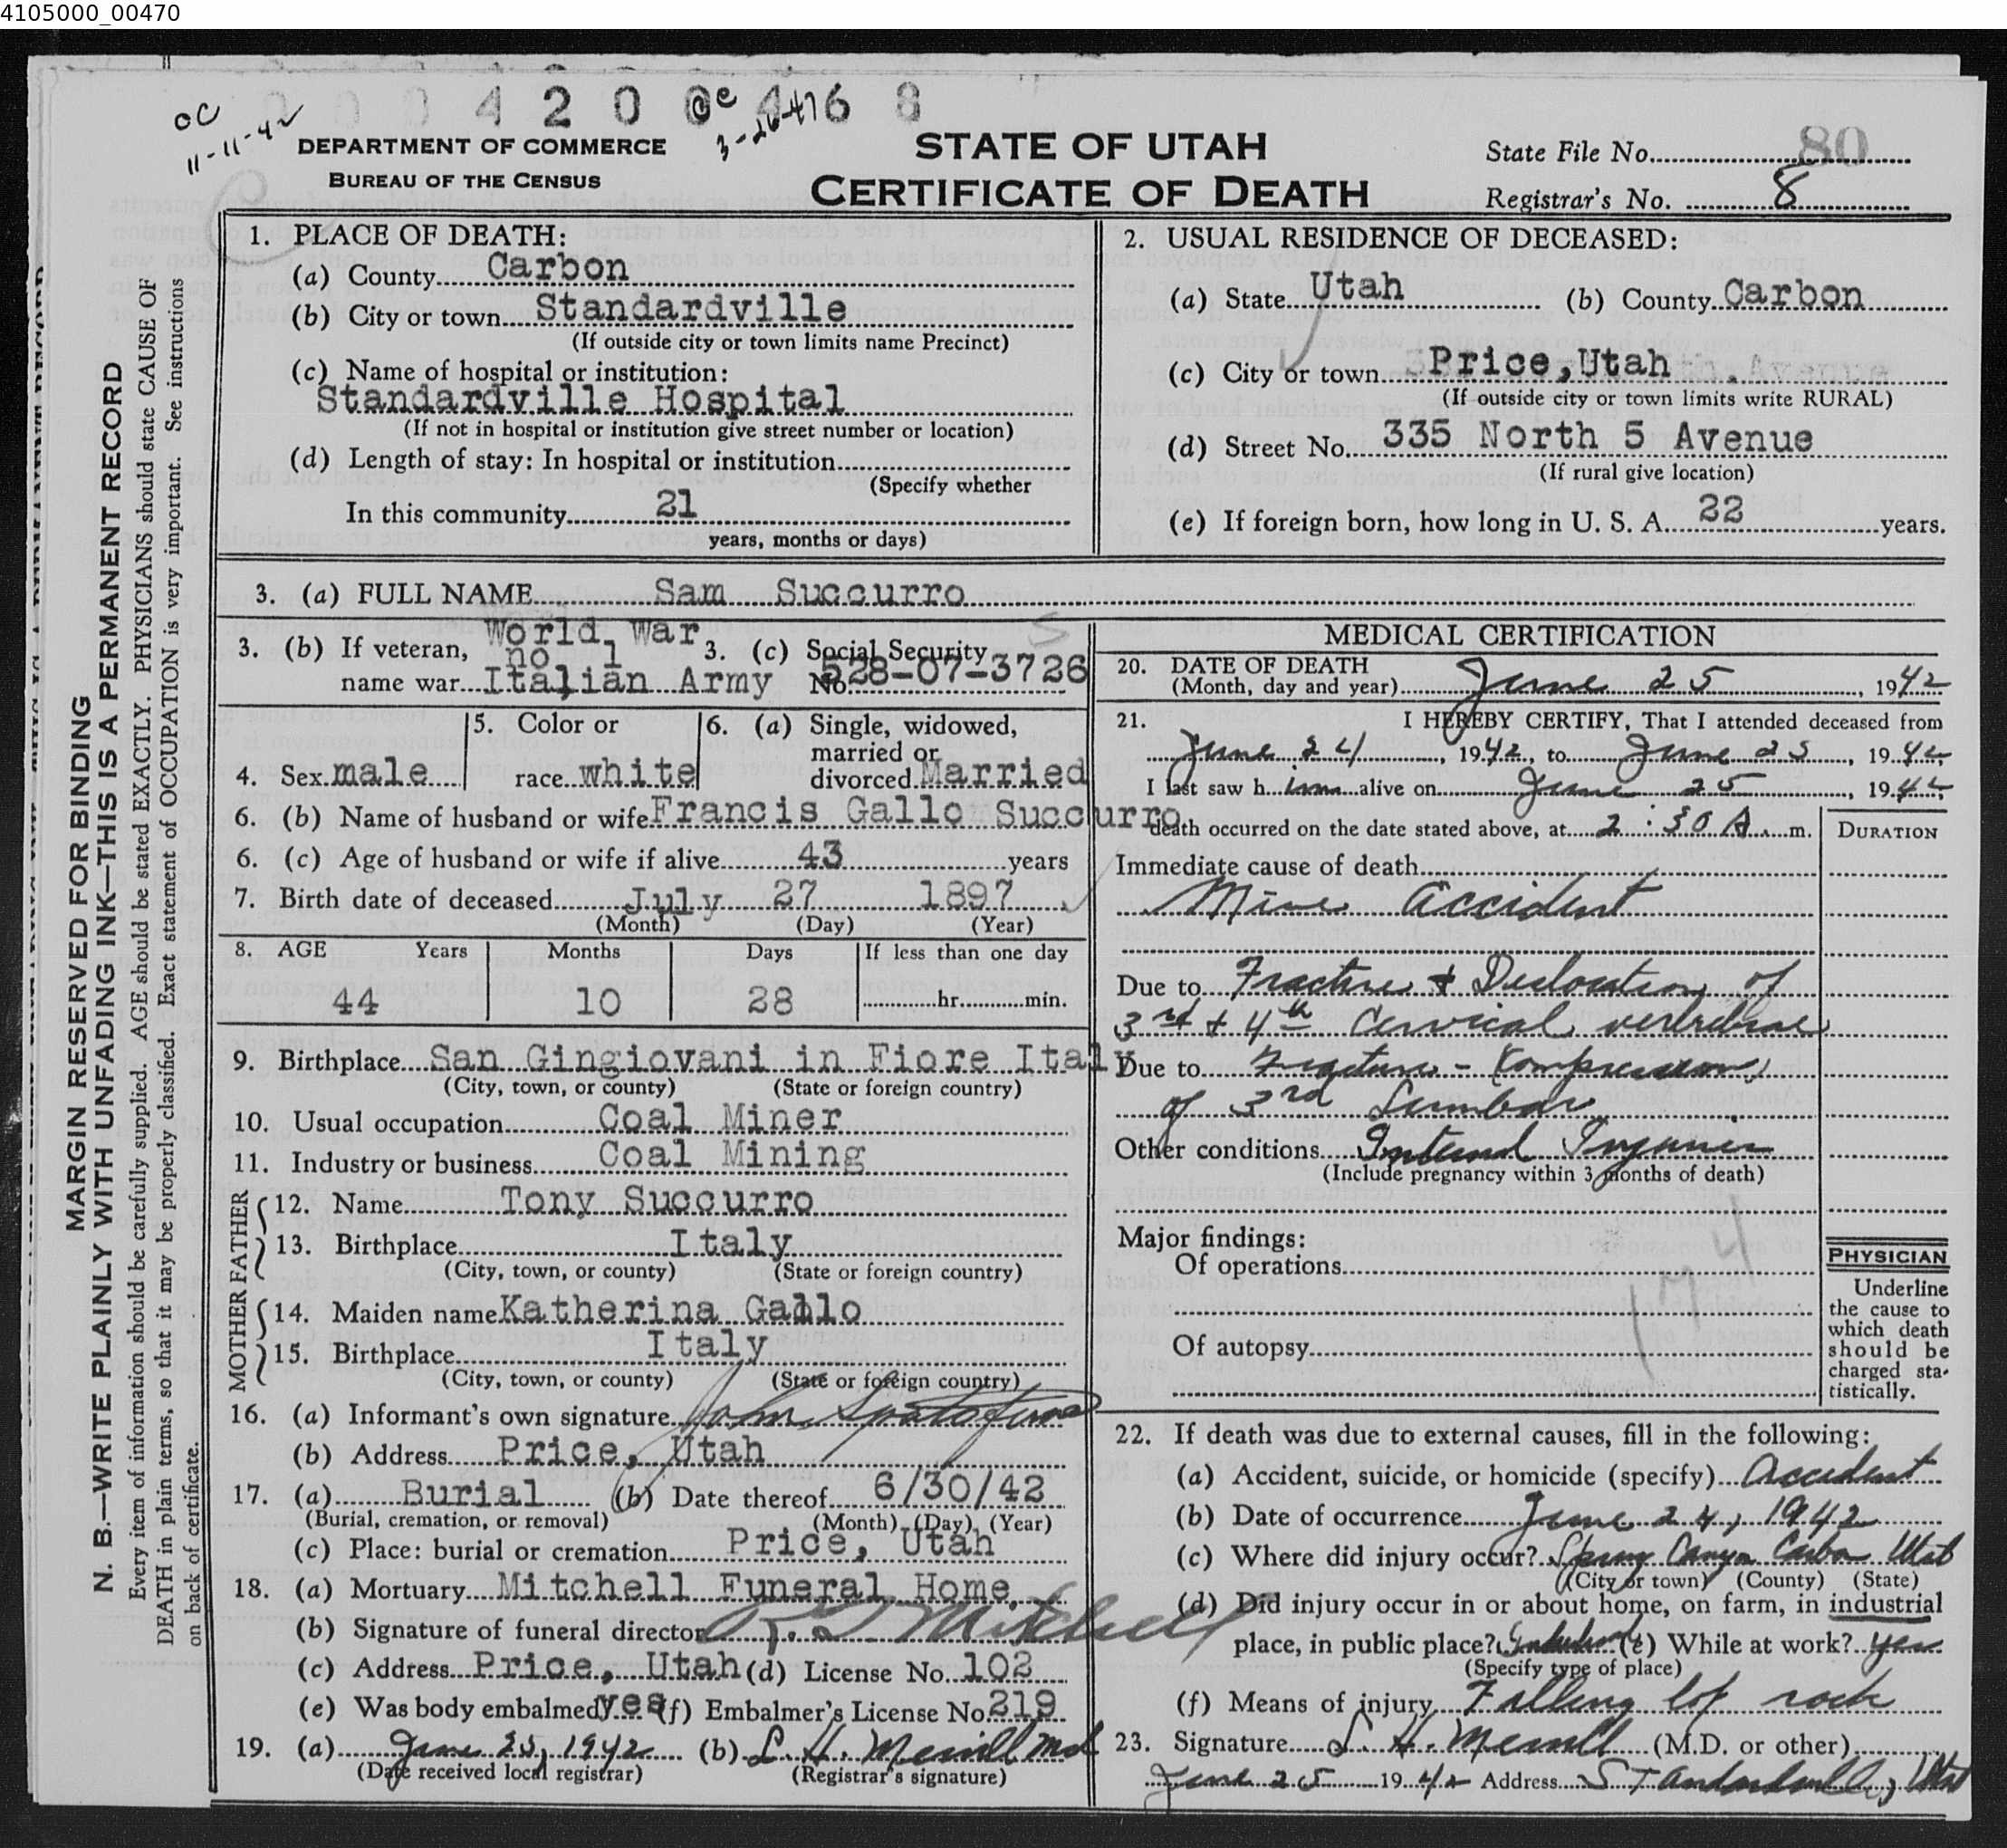 4105000_00470
OC
11-11-42
4 2 0 0 4 6 8
3-26-47
DEPARTMENT OF COMMERCE
BUREAU OF THE CENSUS
STATE OF UTAH
CERTIFICATE OF DEATH
State File No. 80
Registrar's No. 8
MARGIN RESERVED FOR BINDING
N. B.—WRITE PLAINLY WITH UNFADING INK—THIS IS A PERMANENT RECORD
Every item of information should be carefully supplied. AGE should be stated EXACTLY. PHYSICIANS should state CAUSE OF
DEATH in plain terms, so that it may be properly classified. Exact statement of OCCUPATION is very important. See instructions
on back of certificate.
1. PLACE OF DEATH:
(a) County Carbon
(b) City or town Standardville
(If outside city or town limits name Precinct)
(c) Name of hospital or institution:
Standardville Hospital
(If not in hospital or institution give street number or location)
(d) Length of stay: In hospital or institution
(Specify whether
In this community 21
years, months or days)
2. USUAL RESIDENCE OF DECEASED:
(a) State Utah (b) County Carbon
(c) City or town Price,Utah
(If outside city or town limits write RURAL)
(d) Street No. 335 North 5 Avenue
(If rural give location)
(e) If foreign born, how long in U. S. A. 22 years.
3. (a) FULL NAME Sam Succurro
3. (b) If veteran, World War
no 1
name war Italian Army
3. (c) Social Security
No. 528-07-3726
4. Sex male
5. Color or
race white
6. (a) Single, widowed,
married or
divorced Married
6. (b) Name of husband or wife Francis Gallo Succurro
6. (c) Age of husband or wife if alive 43 years
7. Birth date of deceased July 27 1897
(Month) (Day) (Year)
8. AGE Years Months Days If less than one day
44 10 28 hr. min.
9. Birthplace San Gingiovani in Fiore Italy
(City, town, or county) (State or foreign country)
10. Usual occupation Coal Miner
11. Industry or business Coal Mining
FATHER
12. Name Tony Succurro
13. Birthplace Italy
(City, town, or county) (State or foreign country)
MOTHER
14. Maiden name Katherina Gallo
15. Birthplace Italy
(City, town, or county) (State or foreign country)
16. (a) Informant's own signature John
(b) Address Price, Utah
17. (a) Burial (b) Date thereof 6/30/42
(Burial, cremation, or removal) (Month) (Day) (Year)
(c) Place: burial or cremation Price, Utah
18. (a) Mortuary Mitchell Funeral Home,
(b) Signature of funeral director Mitchell
(c) Address Price, Utah (d) License No. 102
(e) Was body embalmed yes (f) Embalmer's License No. 219
19. (a) June 25, 1942 (b) L. H. Merrill Md
(Date received local registrar) (Registrar's signature)
MEDICAL CERTIFICATION
20. DATE OF DEATH
(Month, day and year) June 25, 1942
21. I HEREBY CERTIFY, That I attended deceased from
June 24, 1942, to June 25, 1942
I last saw h im alive on June 25, 1942
death occurred on the date stated above, at 2:30 A. m.
DURATION
Immediate cause of death
Mine accident
Due to Fracture & Dislocation of
3rd & 4th Cervical vertebrae
Due to Fracture - Compression
of 3rd Lumbar
Other conditions Internal Injuries
(Include pregnancy within 3 months of death)
Major findings:
Of operations
Of autopsy
PHYSICIAN
Underline
the cause to
which death
should be
charged sta-
tistically.
22. If death was due to external causes, fill in the following:
(a) Accident, suicide, or homicide (specify) Accident
(b) Date of occurrence June 24, 1942
(c) Where did injury occur? Spring Canyon Carbon Utah
(City or town) (County) (State)
(d) Did injury occur in or about home, on farm, in industrial
place, in public place? Industrial (e) While at work? yes
(Specify type of place)
(f) Means of injury Falling top rock
23. Signature L. H. Merrill (M.D. or other)
June 25 1942 Address Standardville, Utah